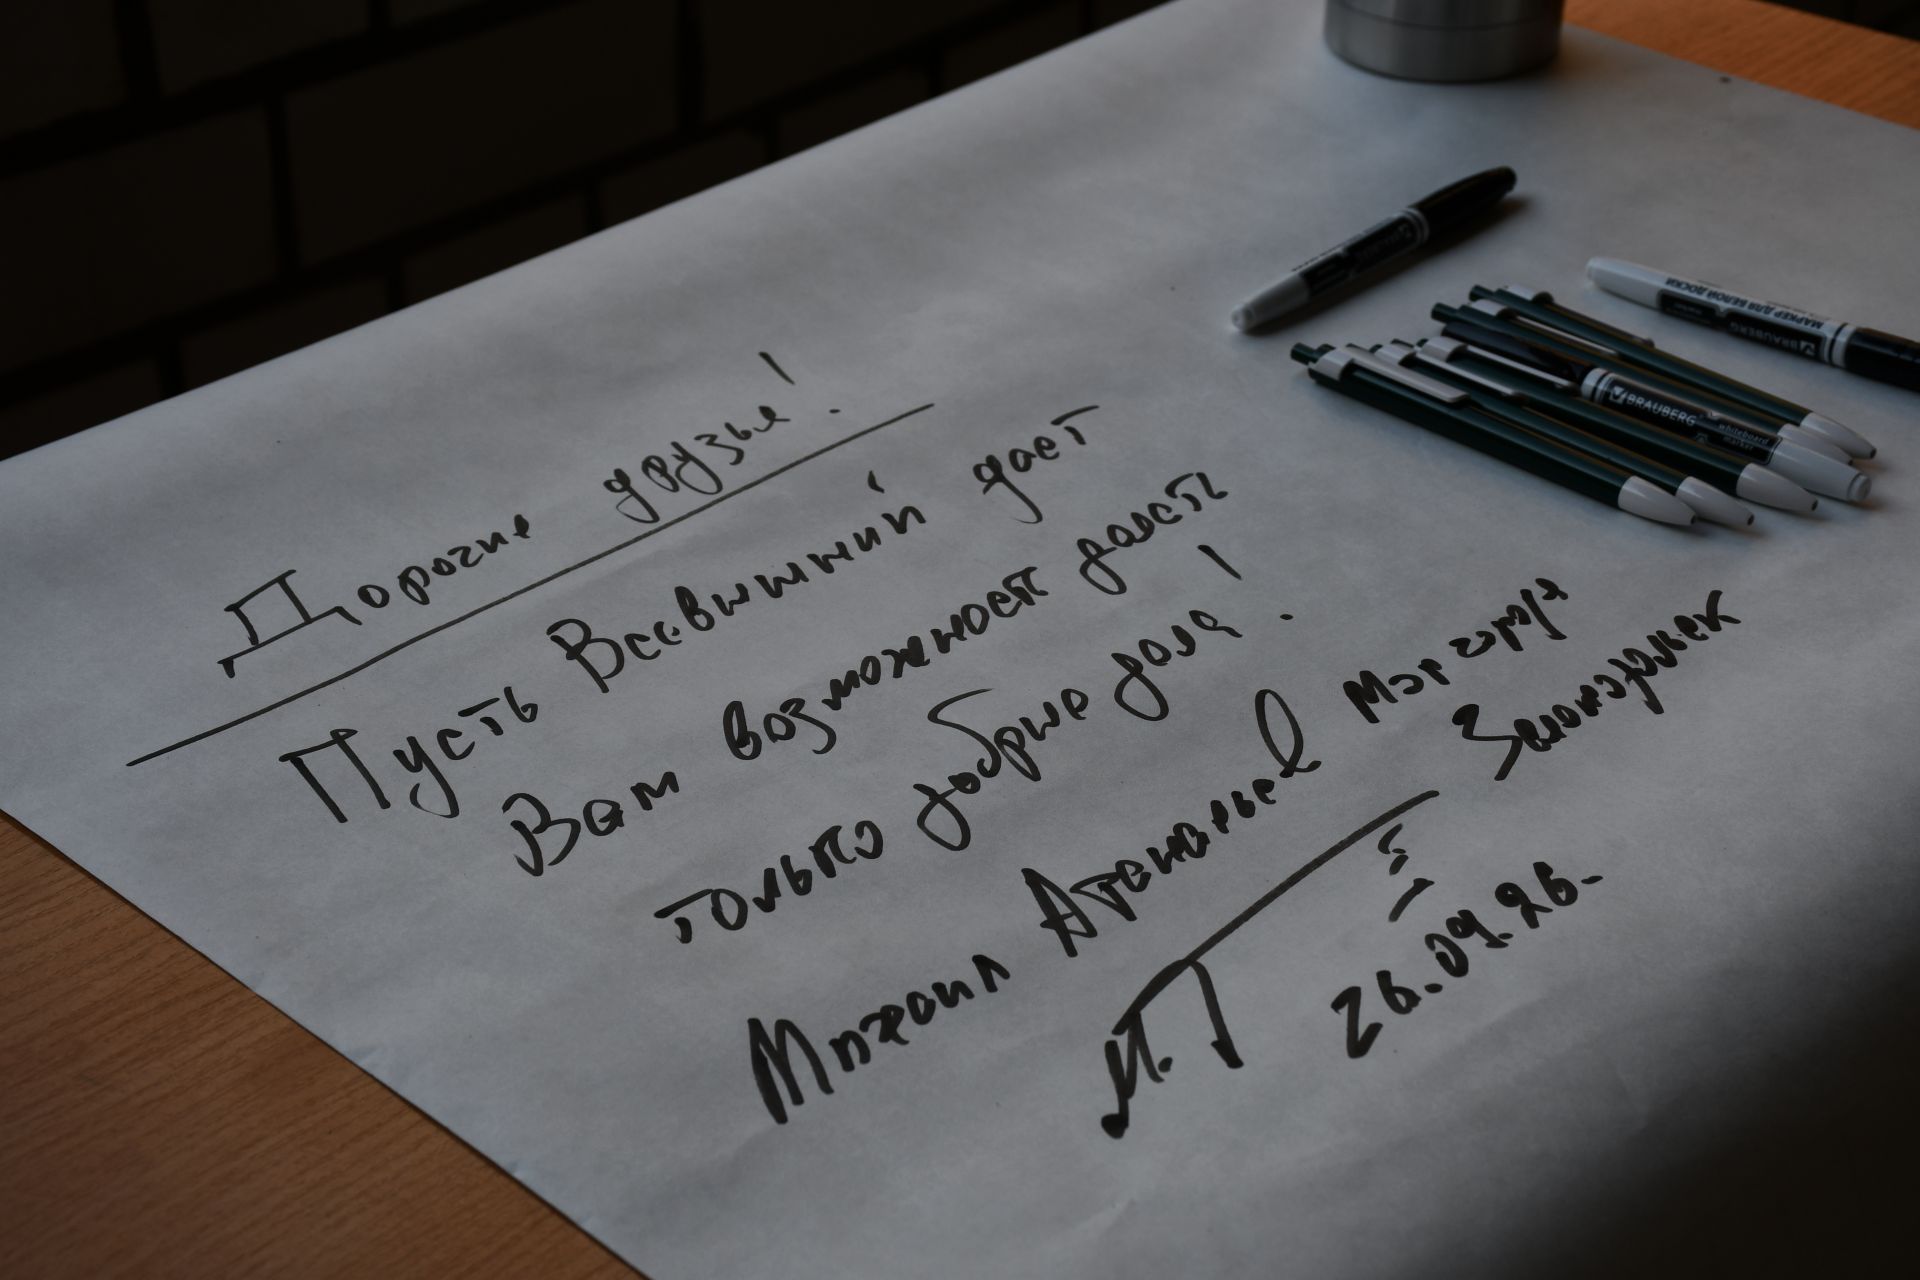 Дорогие друзья!
Пусть Всевышний дает
Вам возможность делать
только добрые дела!
Михаил Атанарьев мэр города
Зеленодольск
26.04.26.
МАРКЕР ДЛЯ БЕЛОЙ ДОСКИ
BRAUBERG
BRAUBERG
whiteboard
marker